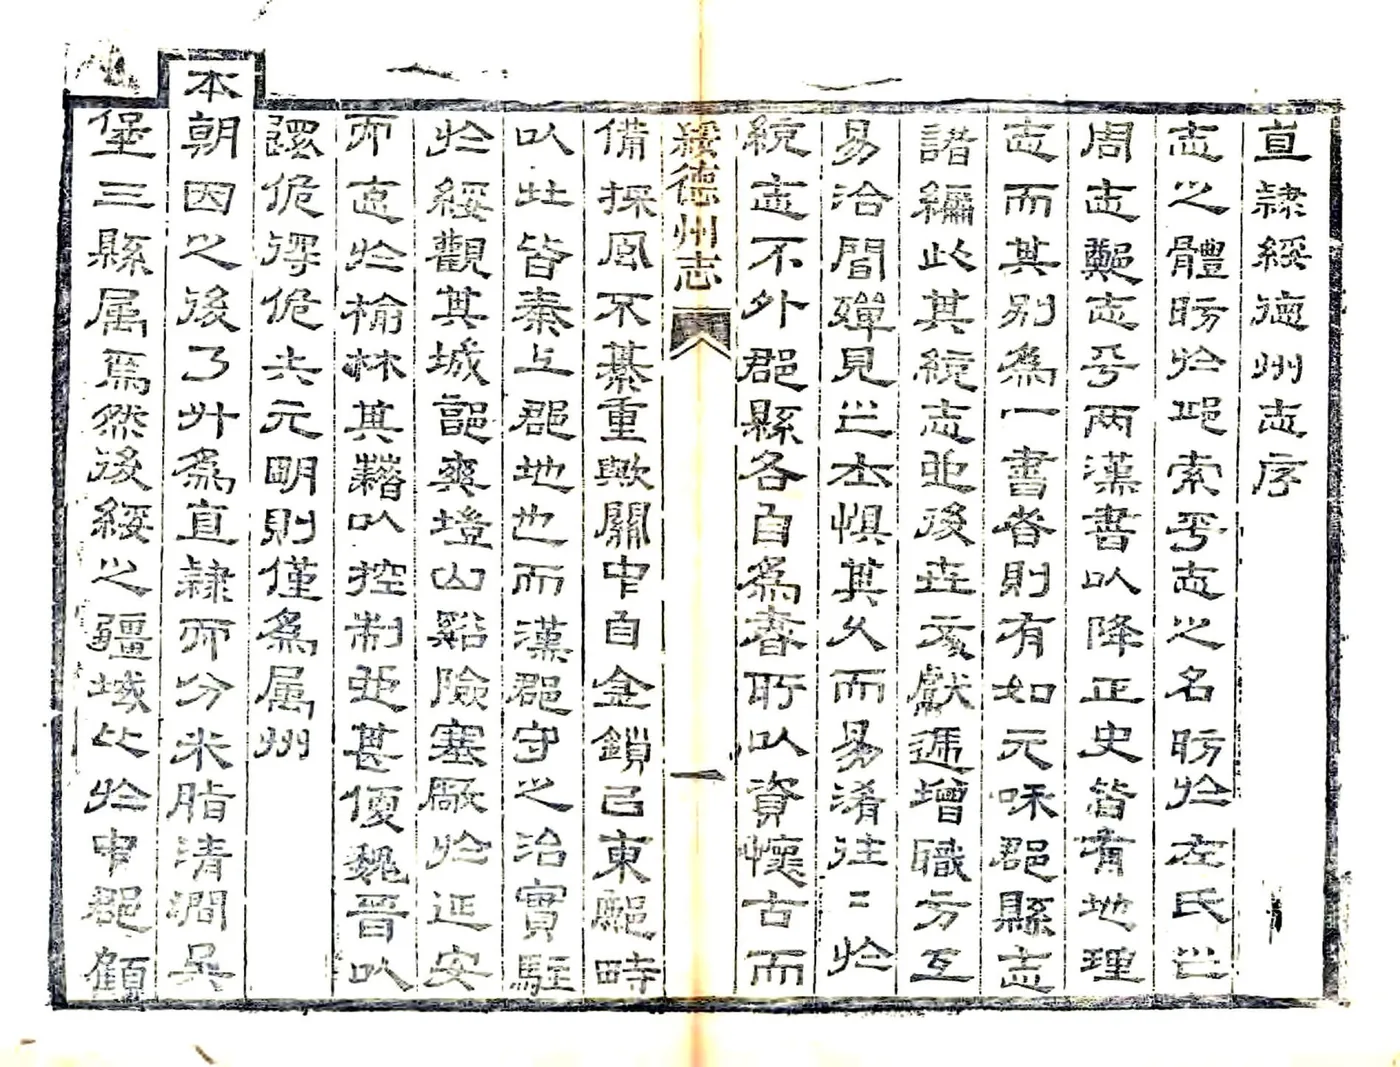 直隸綏德州志序
志之體昉於邱索乎志之名昉於左氏㞢
周志鄭志乎兩漢書以降正史皆有地理
志而其別為一書者則有如元和郡縣志
諸編此其統志也後世文獻遞增職方互
易洽聞殫見㞢士惧其久而易淆往二於
統志不外郡縣各自為書所以資懷古而
綏德州志 一
備採風不綦重歟關中自金鎖已東郿畤
以北皆秦上郡地也而漢郡守之治實駐
於綏觀其城郭爽塏山谿險塞厥於延安
而直於榆林其藉以控制也甚便魏晉以
還佹得佹失元明則僅為属州
本朝因之後乃升為直隸而分米脂清澗吳
堡三縣属焉然後綏之疆域比於中郡顧